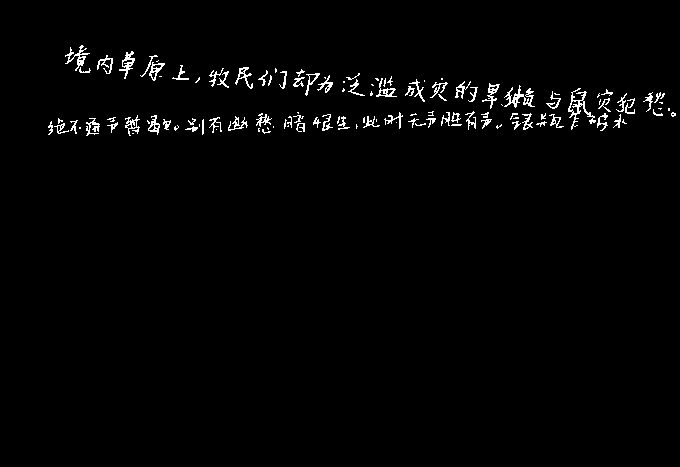 境内草原上，牧民们却为泛滥成灾的旱獭与鼠灾犯愁。
绝不通声暂歇。别有幽愁暗恨生，此时无声胜有声。银瓶乍破水